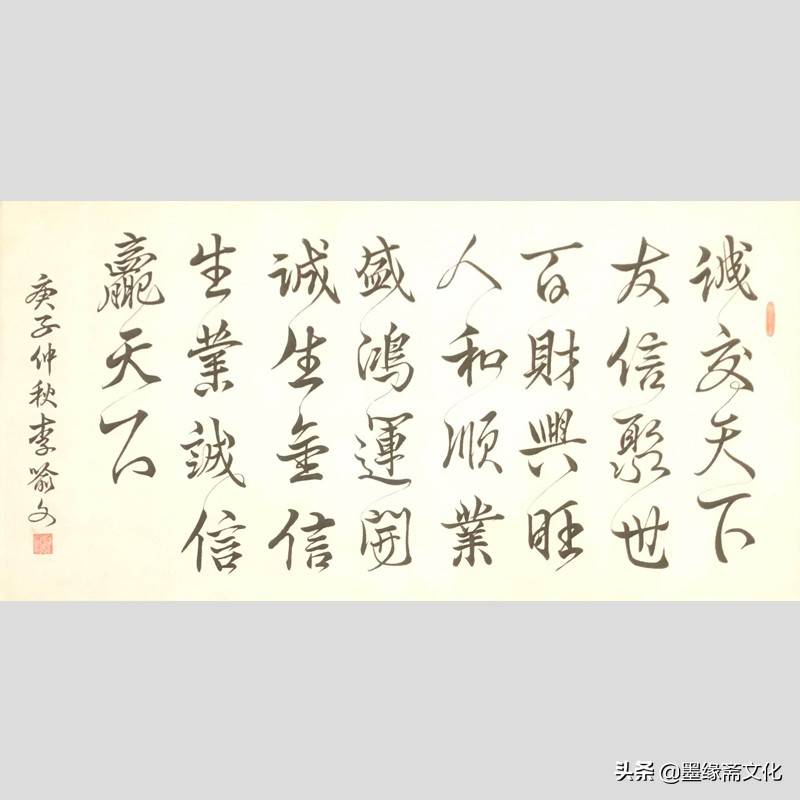 誠交天下
友信聚世
百財興旺
人和順業
盛鴻運開
誠生金信
生業誠信
贏天下
庚子仲秋李喻文
头条 @墨缘斋文化